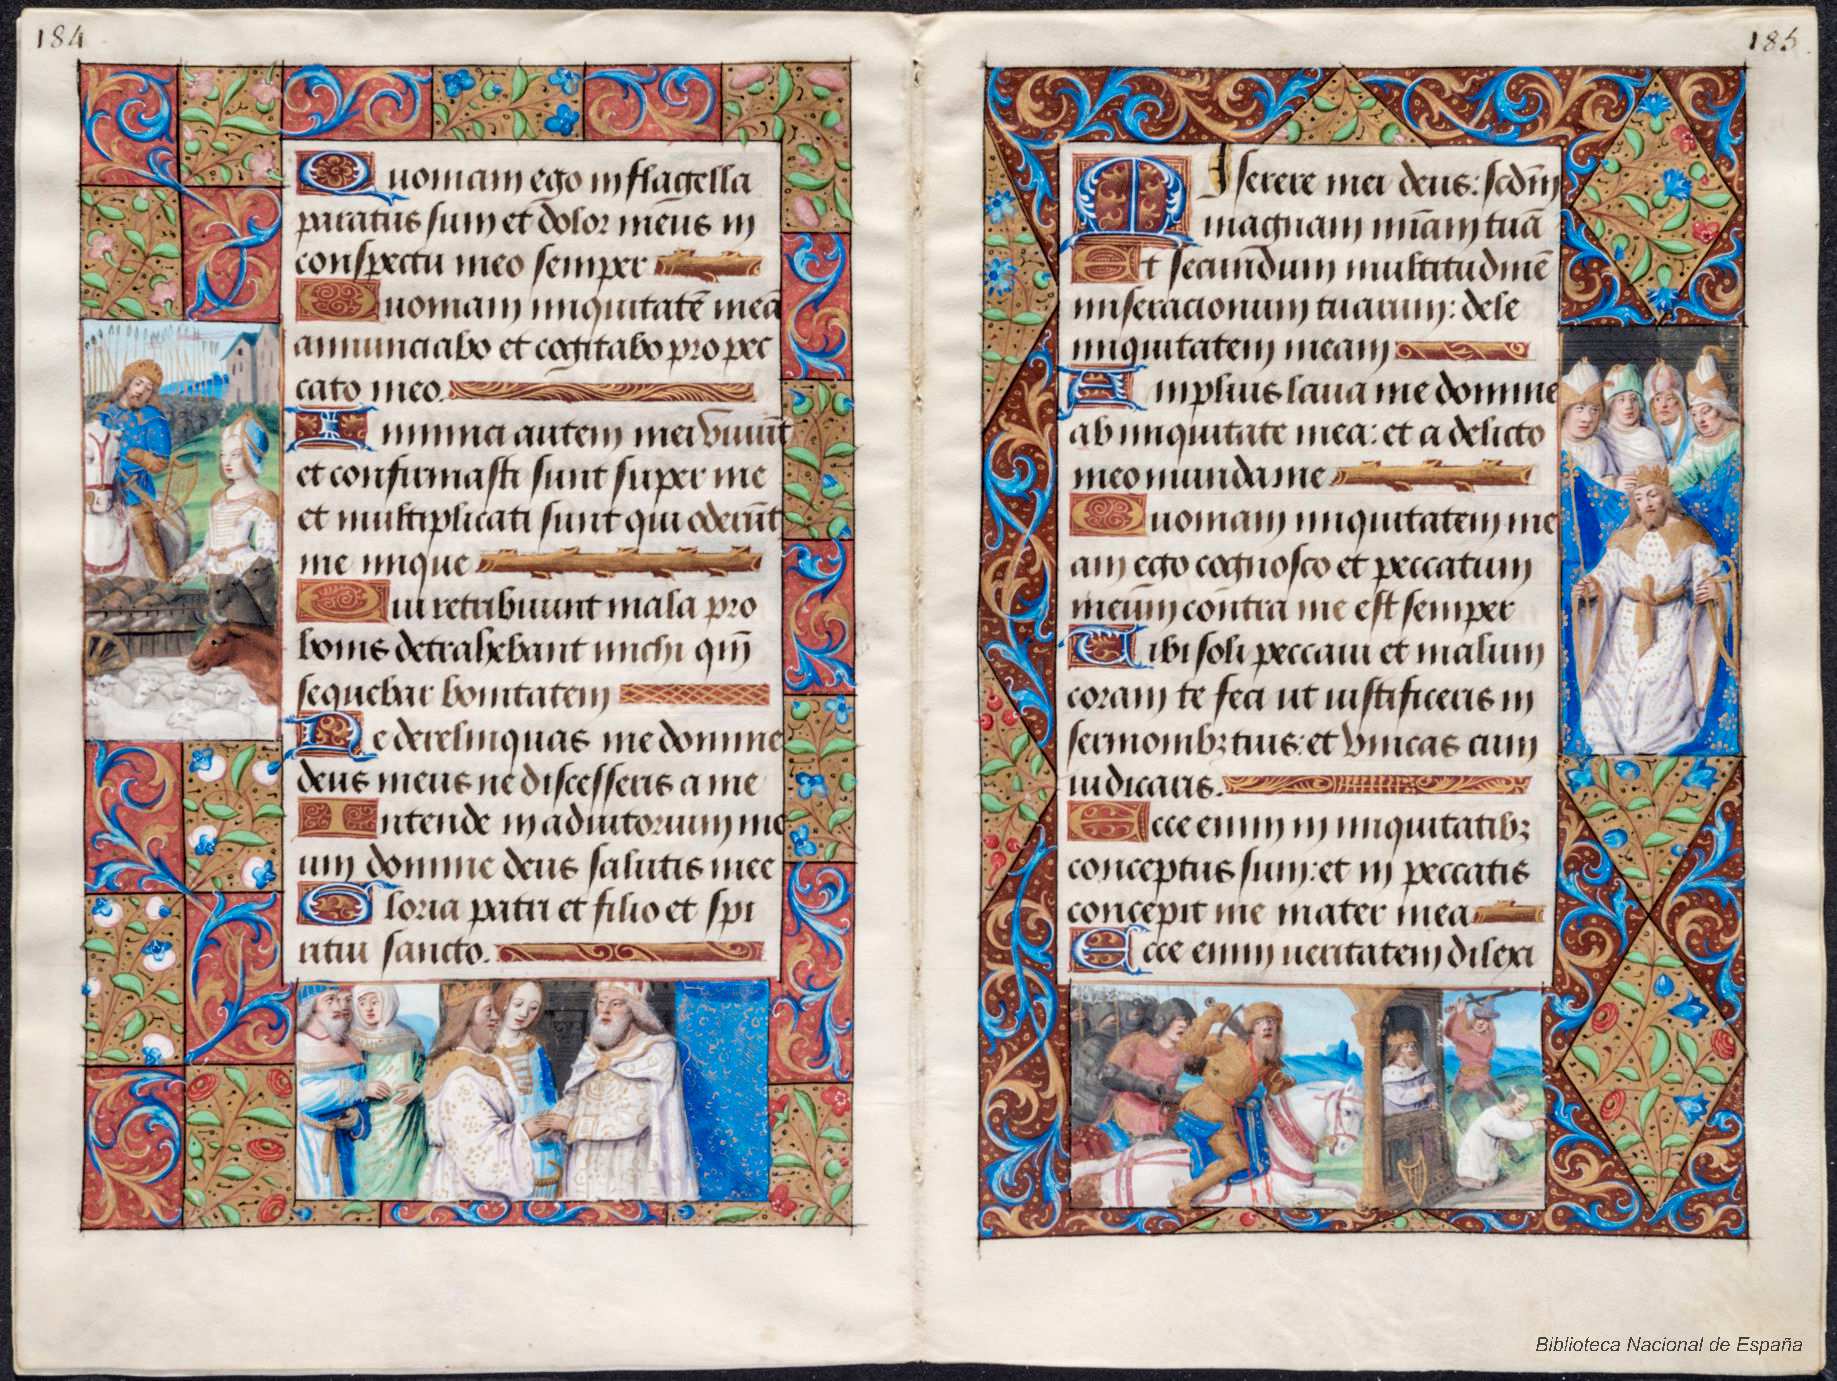 184
Quoniam ego in flagella
paratus sum et dolor meus in
conspectu meo semper
Quoniam iniquitatē meā
annunciabo et cogitabo pro pec
cato meo.
Inimici autem mei viuūt
et confirmasti sunt super me
et multiplicati sunt qui oderūt
me inique
Qui retribuunt mala pro
bonis detrahebant michi qm̄
sequebar bonitatem
Ne derelinquas me domine
deus meus ne discesseris a me
Intende in adiutorium me
um domine deus salutis mee
Gloria patri et filio et spi
ritui sancto.
185
Miserere mei deus: scdm̄
magnam mīam tuā
Et secundum multitudinē
miseracionum tuarum: dele
iniquitatem meam
Amplius laua me domine
ab iniquitate mea: et a delicto
meo munda me
Quoniam iniquitatem me
am ego cognosco et peccatum
meum contra me est semper
Tibi soli peccaui et malum
coram te feci ut iustificeris in
sermonibꝫ tuis: et vincas cum
iudicaris.
Ecce enim in iniquitatibꝫ
conceptus sum: et in peccatis
concepit me mater mea
Ecce enim ueritatem dilexi
Biblioteca Nacional de España